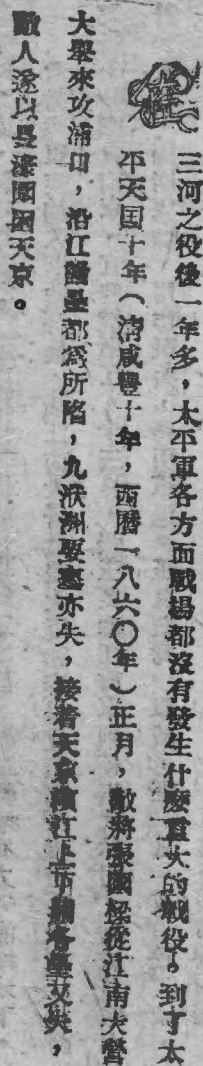 三河之役後一年多，太平軍各方面戰場都沒有發生什麽重大的戰役。到了太
平天国十年（清咸豐十年，西曆一八六〇年）正月，敵將張國樑從江南大營
大舉來攻浦口，沿江諸壘都爲所陷，九洑洲要塞亦失，接着天京濱江上下關各壘又失，
敵人遂以長濠圍困天京。